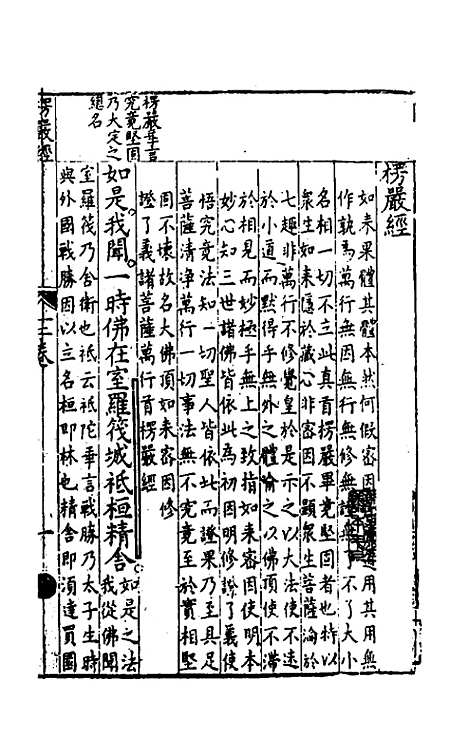 楞嚴經
如來果體其體本然何假密因
用其用無
作執為萬行無因無行無修無證
無了不了大小
名相一切不立此真首楞嚴畢竟堅固者也特以
衆生如來隱於藏心非密因不顯衆生菩薩淪於
七趣非萬行不修覺皇於是示之以大法使不迷
於小道而默得乎無外之體喻之以佛頂使不滯
於相見而妙極乎無上之致指如來密因使明本
妙心知三世諸佛皆依此為初因明修證了義使
悟究竟法知一切聖人皆依此而證果乃至具足
菩薩清淨萬行一切事法無不究竟至於實相堅
固不壞故名大佛頂如來密因修
證了義諸菩薩萬行首楞嚴經
楞嚴華言
究竟堅固
乃大定之
總名
如是我聞一時佛在室羅筏城祇桓精舍
如是之法
我從佛聞
室羅筏乃舍衛也祇云祇陀華言戰勝乃太子生時
與外國戰勝因以立名桓即林也精舍即須達買園
楞嚴經
一卷
一